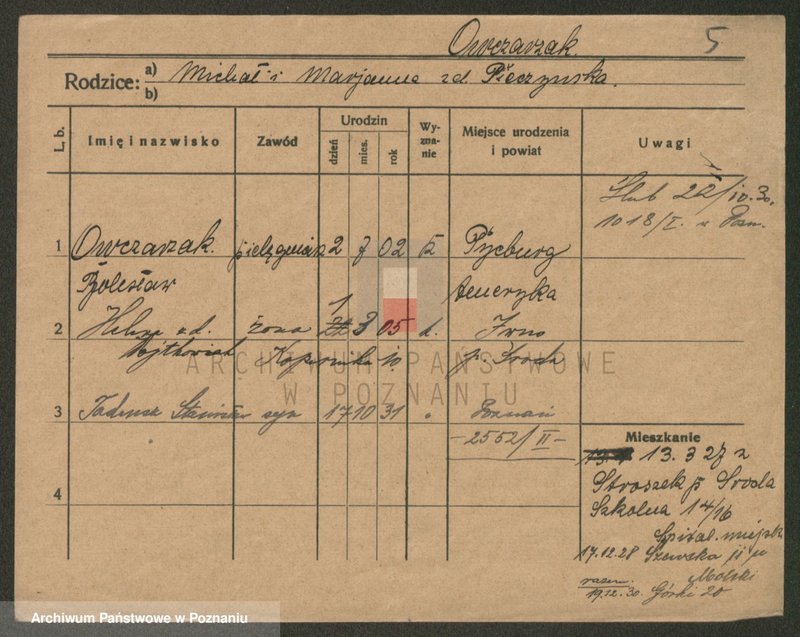 Owczarzak. 5
Rodzice: a) Michał i Marjanna z d. Pieczyńska.
b)
L. b. Imię i nazwisko Zawód Urodzin dzień mies. rok Wy-zna-nie Miejsce urodzenia i powiat Uwagi
Ślub 22/IV.30.
1018/I. w Pozn.
1 Owczarzak. pielęgniarz 2 7 02 k Pycburg
Bolesław Ameryka
1
2 Helena z d. żona 22 3 05 k.
Kopernika 10 p. Środa
3 Tadeusz Stanisław syn 17 10 31 " Poznań
-2552/II-
Mieszkanie
13. 3 27 z
4 Stroszek p Środa
Szkolna 14/16
Szpital. miejsk
17.12.28 Szewska 11 u
Molski
razem. 19.12.30. Górki 20
ARCHIWUM PAŃSTWOWE
W POZNANIU
Archiwum Państwowe w Poznaniu